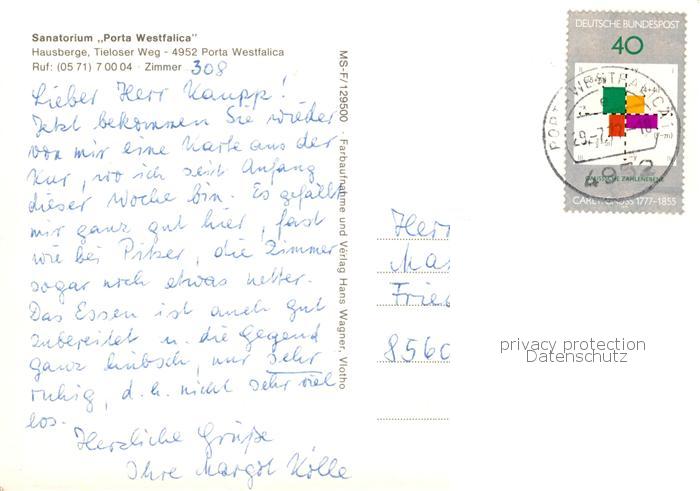 Sanatorium „Porta Westfalica"
Hausberge, Tieloser Weg - 4952 Porta Westfalica
Ruf: (05 71) 7 00 04 · Zimmer 308
Lieber Herr Kaupp!
Jetzt bekommen Sie wieder
von mir eine Karte aus der
Kur, wo ich seit Anfang
dieser Woche bin. Es gefällt
mir ganz gut hier, fast
wie bei Pitzer, die Zimmer
sogar noch etwas netter.
Das Essen ist auch gut
zubereitet u. die Gegend
ganz hübsch, nur sehr
ruhig, d.h. nicht sehr viel
los.
Herzliche Grüße
Ihre Margot Kölle
MS-F/129500 · Farbaufnahme und Verlag Hans Wagner, Vlotho
DEUTSCHE BUNDESPOST
40
GAUSSSCHE ZAHLENEBENE
CARL F. GAUSS 1777-1855
PORTA WESTFALICA 1
4952
Herr
Mas
Fried
8560
privacy protection
Datenschutz